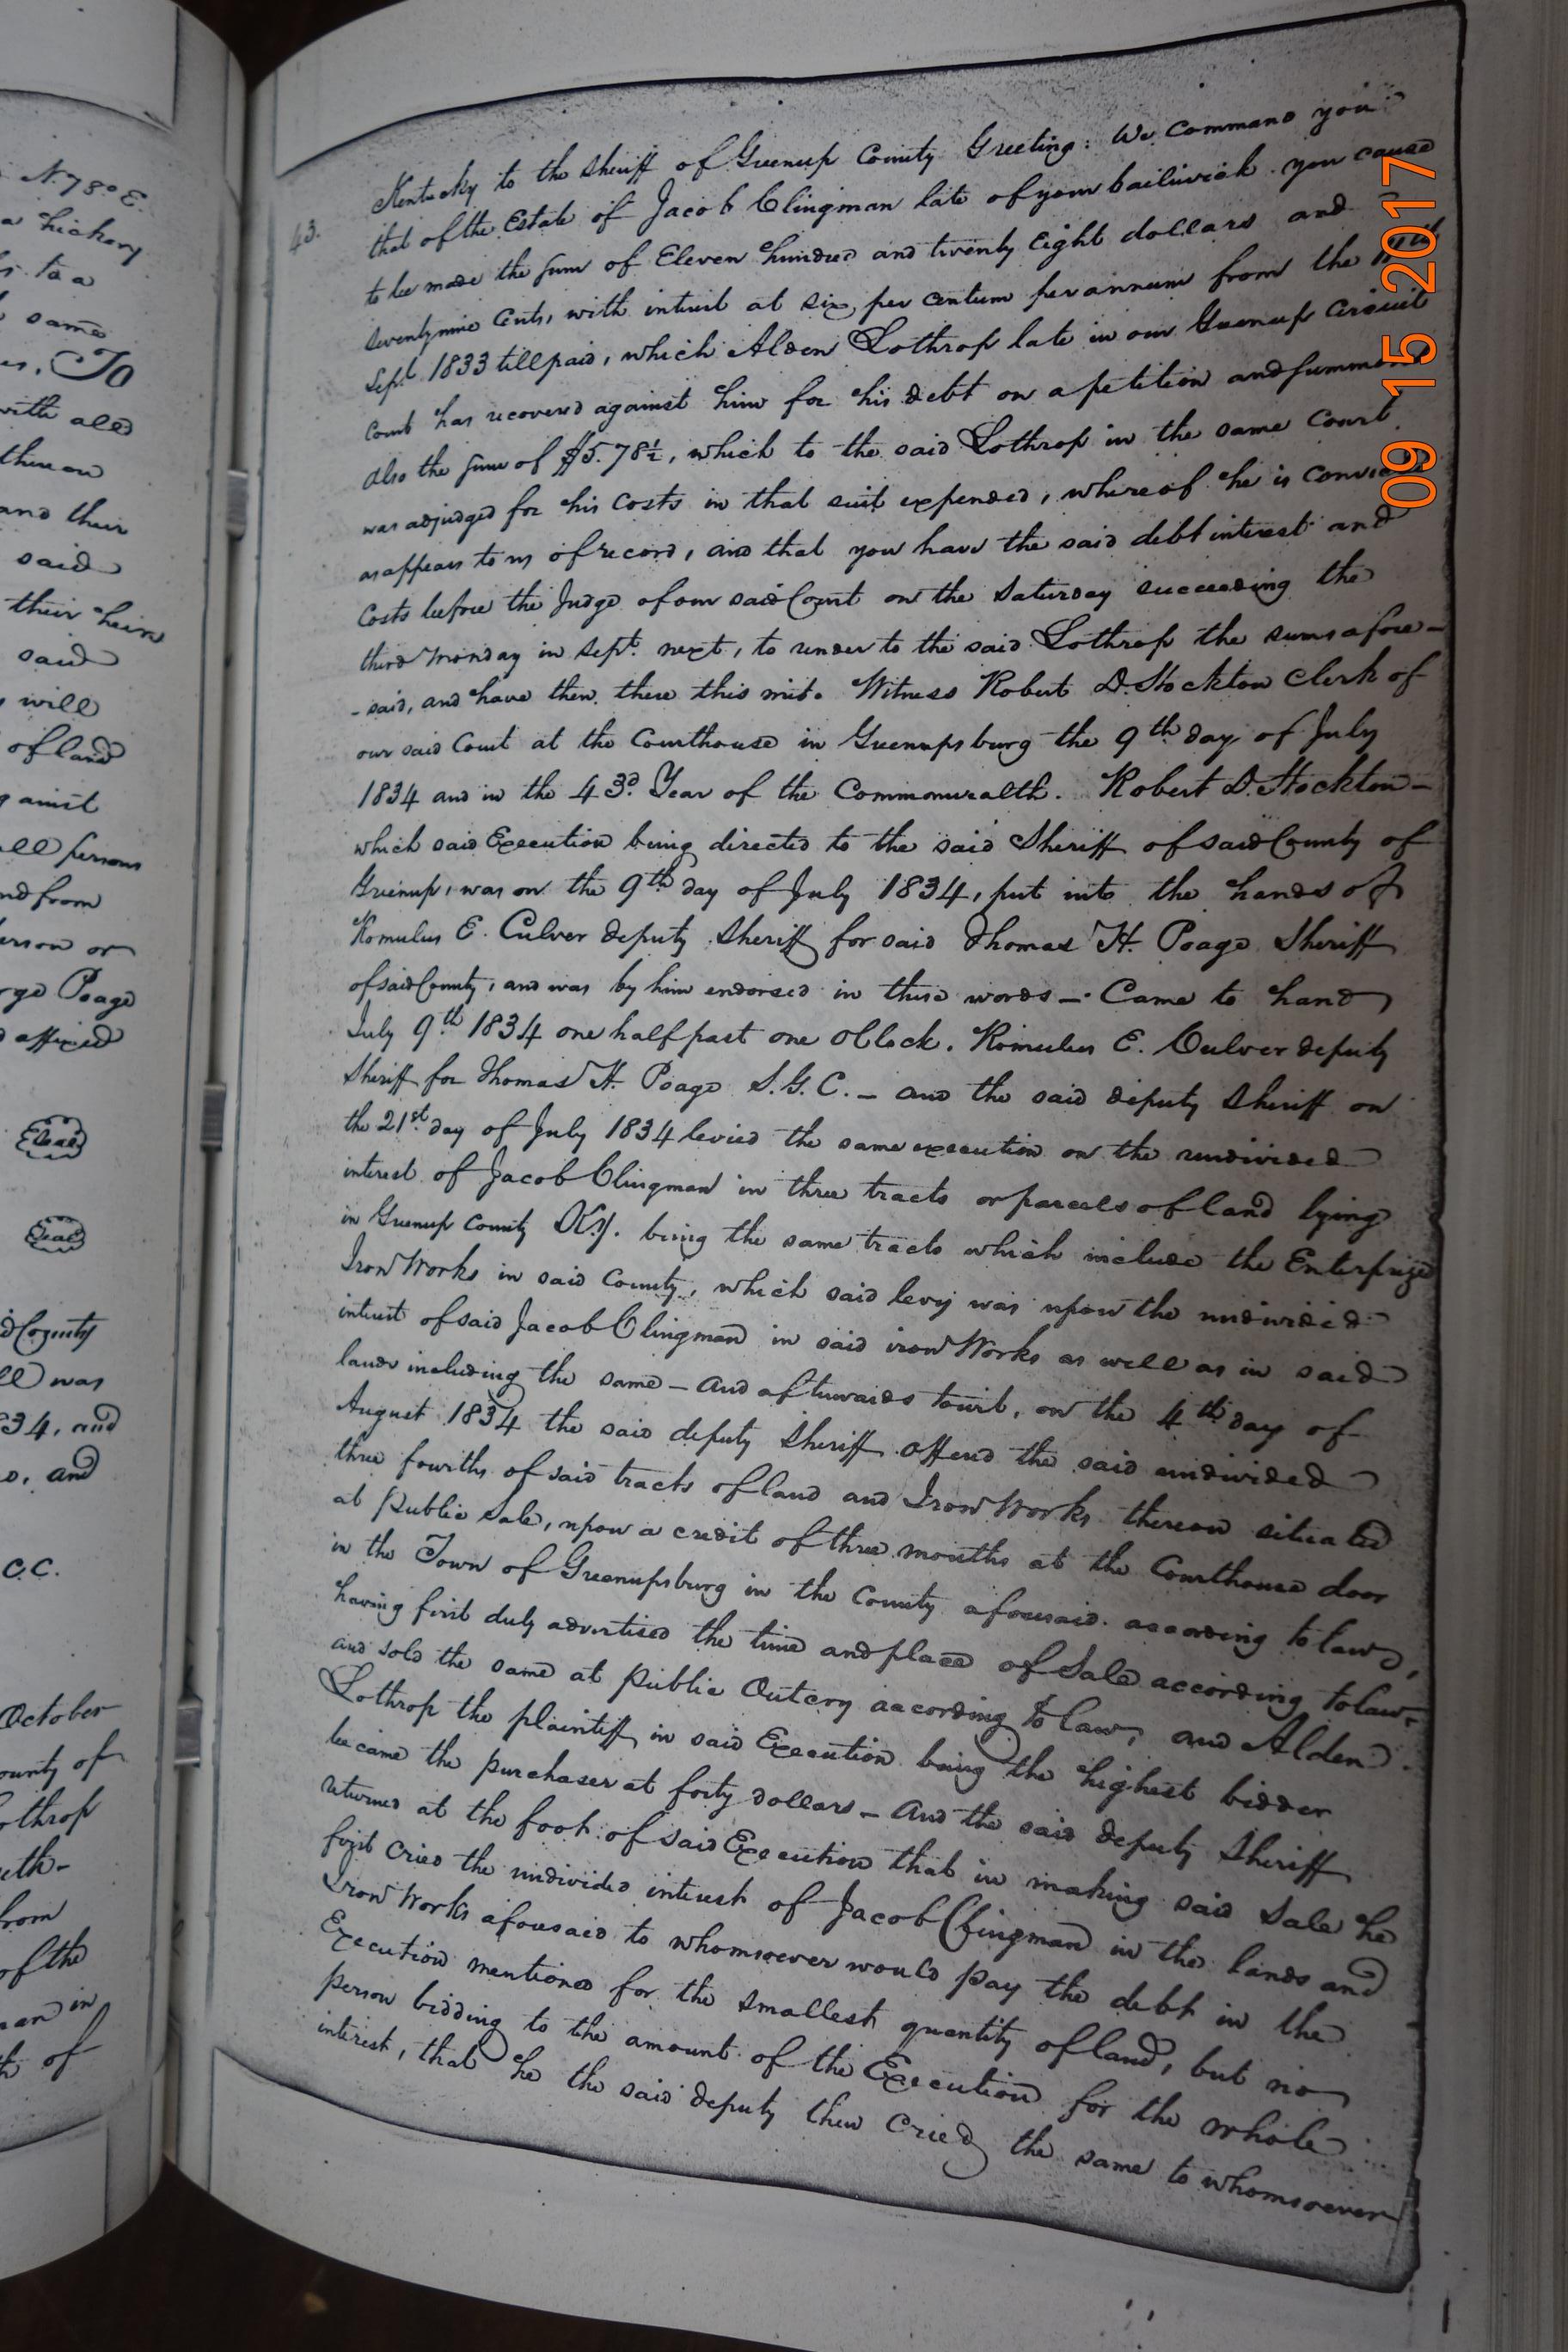 N. 78° E.
a hickory
to a
same
To
with all
thereon
and their
said
their heirs
said
will
of land
against
all persons
and from
person or
Poage
affixed
Seal
Seal
County
was
34, and
and
C.C.
October
County of
Lothrop
from
of the
in
of
43.
Kentucky to the Sheriff of Greenup County Greeting: We Command you
that of the Estate of Jacob Clingman late of your bailiwick you cause
to be made the sum of Eleven hundred and twenty Eight dollars and
seventy nine Cents, with interest at six per centum per annum from the
Sept. 1833 till paid, which Alden Lothrop late in our Greenup Circuit
Court has recovered against him for his debt on a petition and summons
Also the sum of $5.78½, which to the said Lothrop in the same Court
was adjudged for his Costs in that suit expended, whereof he is
as appears to us of record, and that you have the said debt interest and
Costs before the Judge of our said Court on the Saturday succeeding the
third Monday in Sept. next, to render to the said Lothrop the sums afore-
-said, and have then there this writ. Witness Robert D. Stockton Clerk of
our said Court at the Courthouse in Greenupsburg the 9th day of July
1834 and in the 43d. Year of the Commonwealth. Robert D. Stockton -
which said Execution being directed to the said Sheriff of said County of
Greenup, was on the 9th day of July 1834, put into the hands of
Romulus E. Culver deputy Sheriff for said Thomas H. Poage Sheriff
of said County, and was by him endorsed in these words - Came to hand
July 9th 1834 one half past one OClock. Romulus E. Culver deputy
Sheriff for Thomas H. Poage S.G.C. - and the said deputy Sheriff on
the 21st day of July 1834 levied the same execution on the undivided
interest of Jacob Clingman in three tracts or parcels of land lying
in Greenup County Ky. being the same tracts which include the Enterprize
Iron Works in said County, which said levy was upon the undivided
interest of said Jacob Clingman in said iron Works as well as in said
lands including the same - and afterwards towit, on the 4th day of
August 1834 the said deputy Sheriff offered the said undivided
three fourths of said tracts of land and Iron Works thereon situated
at Public Sale, upon a credit of three months at the Courthouse door
in the Town of Greenupsburg in the County aforesaid according to law,
having first duly advertised the time and place of Sale according to law -
and sold the same at public Outcry according to law, and Alden
Lothrop the plaintiff in said Execution being the highest bidder
became the purchaser at forty dollars - And the said deputy Sheriff
returned at the foot of said Execution that in making said Sale he
first Cried the undivided interest of Jacob Clingman in the lands and
Iron Works aforesaid to whomsoever would pay the debt in the
Execution mentioned for the smallest quantity of land, but no
person bidding to the amount of the Execution for the whole
interest, that he the said deputy then Cried the same to whomsoever
09 15 2017